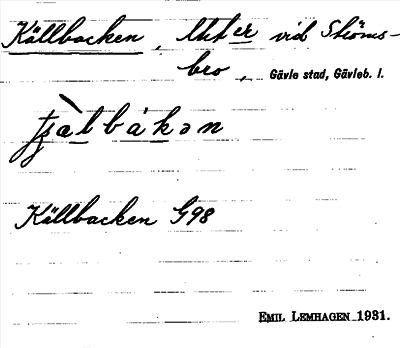 Källbacken, Utter vid Ströms-
bro, Gävle stad, Gävleb. l.
Källbacken G98
EMIL LEMHAGEN 1931.